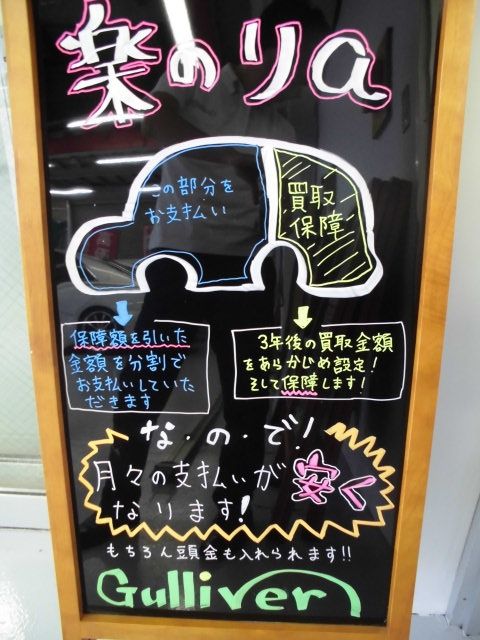 楽のりa
この部分を
お支払い
買取
保障
保障額を引いた
金額を分割で
お支払いしていた
だきます
3年後の買取金額
をあらかじめ設定!
そして保障します!
な・の・で!
月々の支払いが安く
なります!
もちろん頭金も入れられます!!
Gulliver